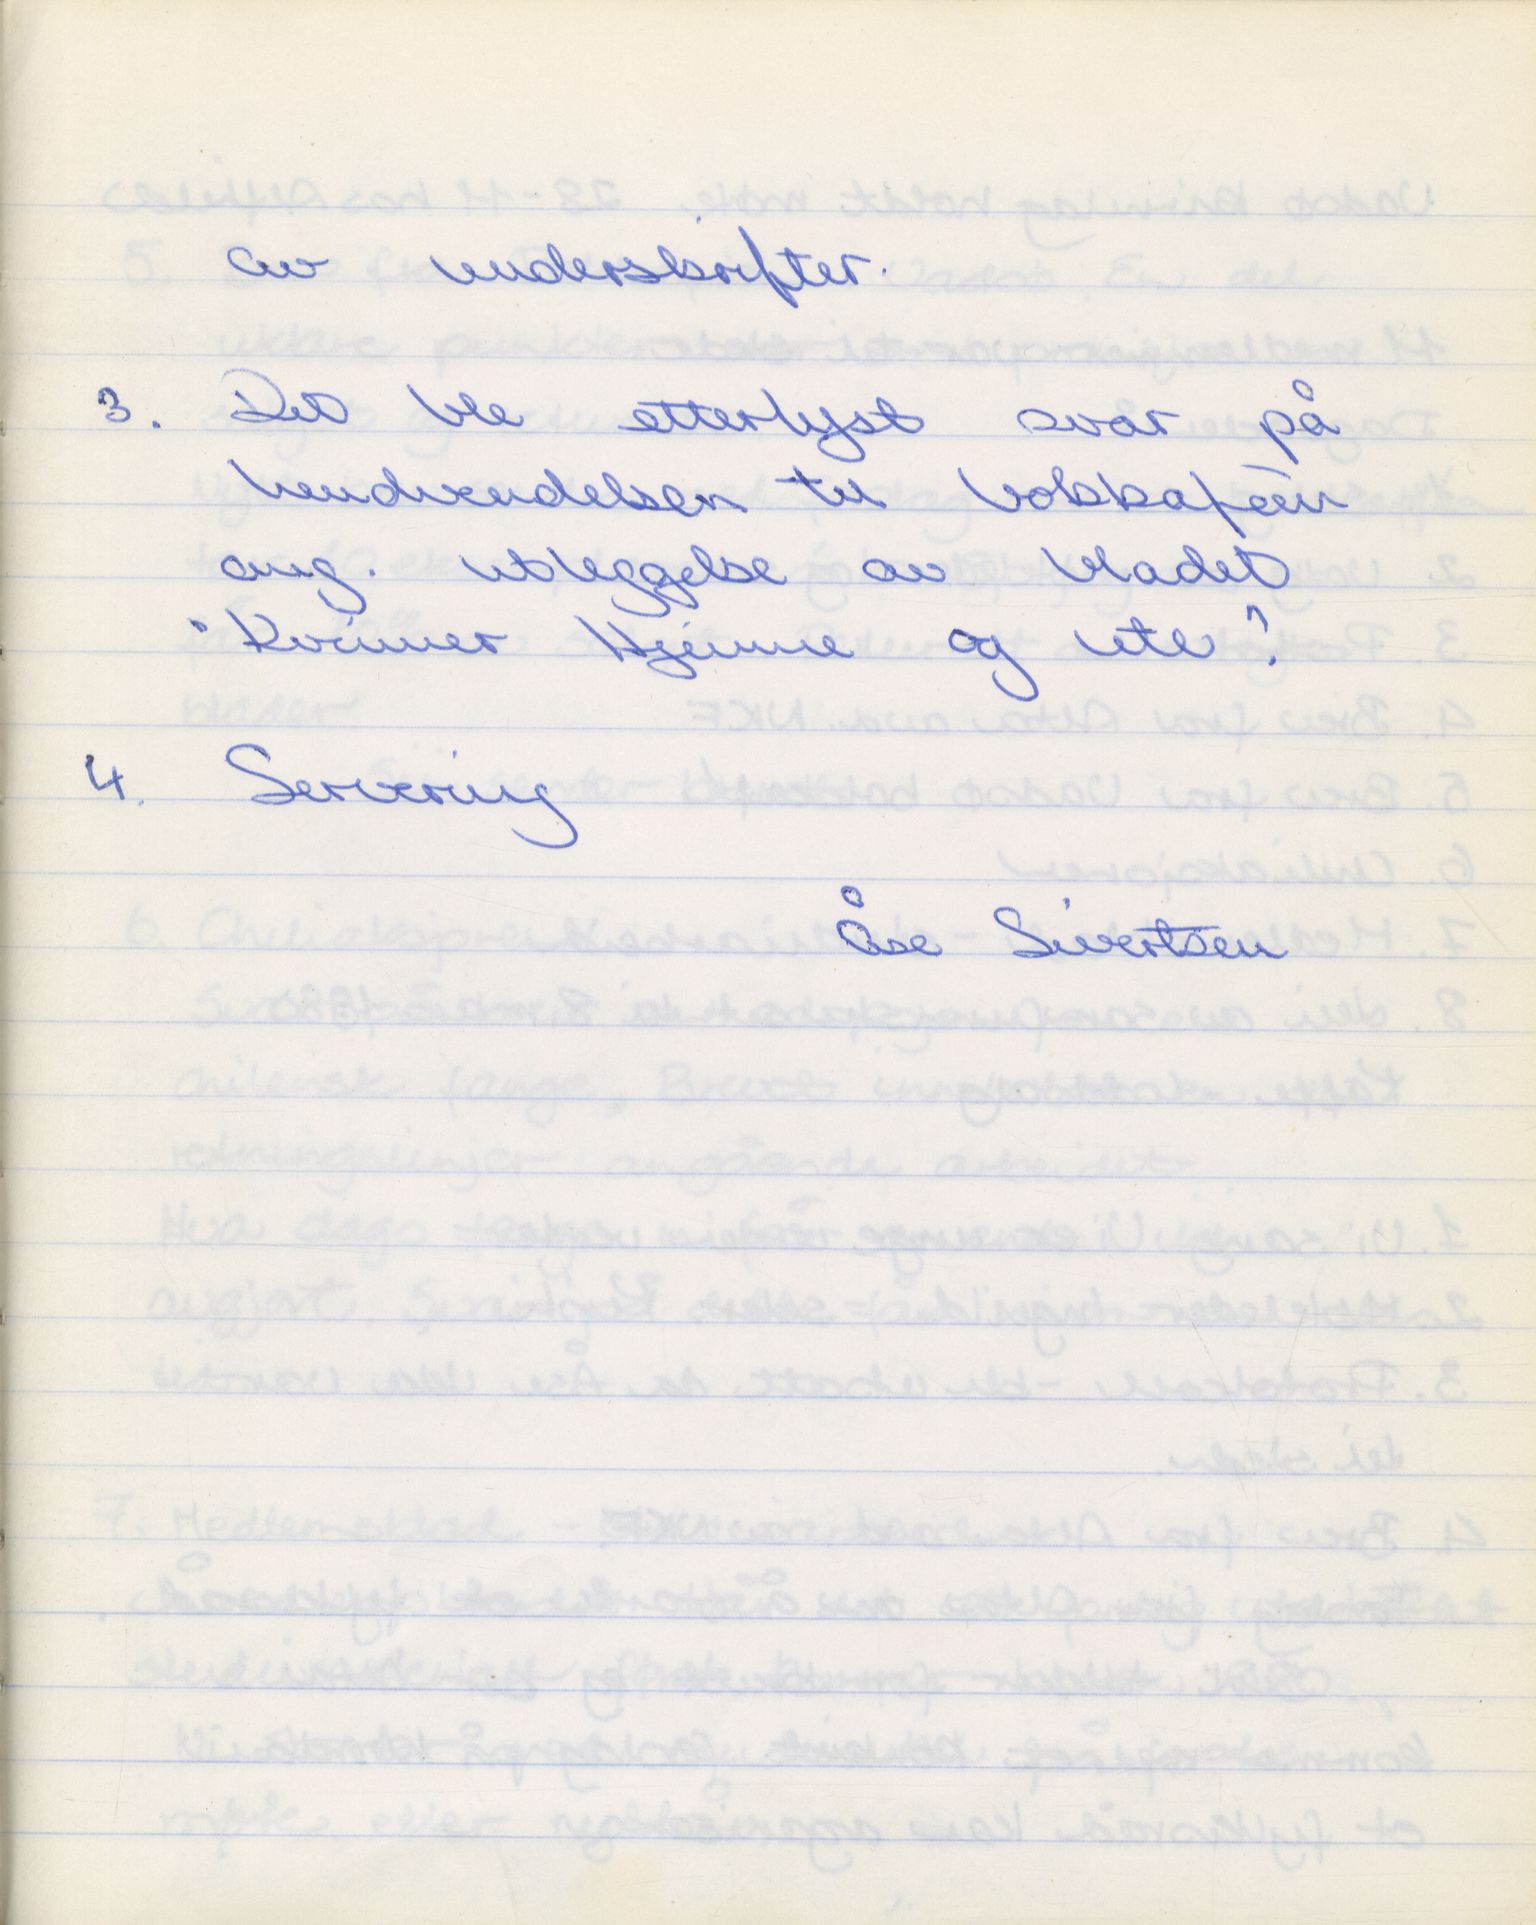 av underskrifter.
3. Det ble etterlyst svar på
henvendelsen til bokkaféen
ang. utleggelse av bladet
"Kvinner Hjemme og ute"?
4. Servering
Åse Sivertsen